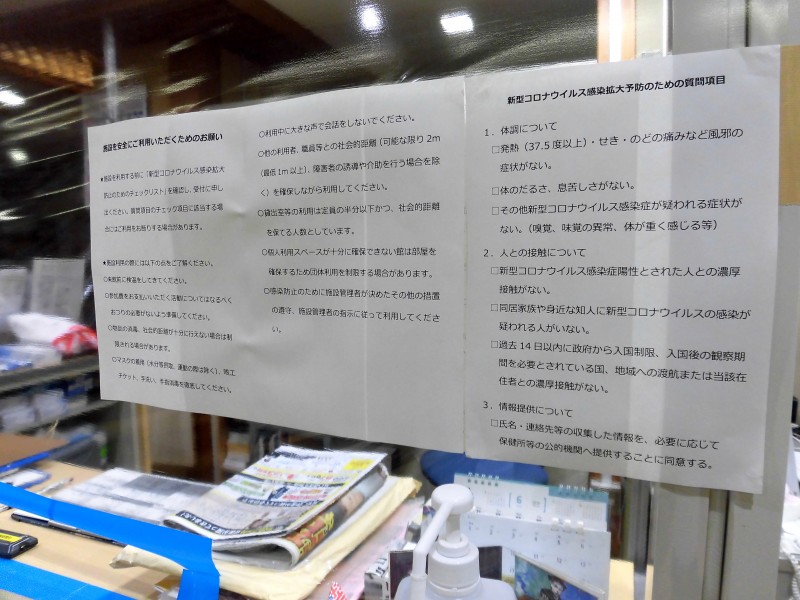 施設を安全にご利用いただくためのお願い
★施設を利用する前に「新型コロナウイルス感染拡大
防止のためのチェックリスト」を確認し、受付に申し
出ください。質問項目のチェック項目に該当する場
合にはご利用をお断りする場合があります。
★施設利用の際には以下の点をご了解ください。
○来館前に検温をしてきてください。
○参加費をお支払いいただく活動についてはなるべく
おつりの必要がないよう準備してください。
○物品の消毒、社会的距離が十分に行えない場合は制
限される場合があります。
○マスクの着用（水分等摂取、運動の際は除く）、咳エ
チケット、手洗い、手指消毒を徹底してください。
○利用中に大きな声で会話をしないでください。
○他の利用者、職員等との社会的距離（可能な限り2m
（最低1m以上）、障害者の誘導や介助を行う場合を除
く）を確保しながら利用してください。
○貸出室等の利用は定員の半分以下かつ、社会的距離
を保てる人数としています。
○個人利用スペースが十分に確保できない館は部屋を
確保するため団体利用を制限する場合があります。
○感染防止のために施設管理者が決めたその他の措置
の遵守、施設管理者の指示に従って利用してくださ
い。
新型コロナウイルス感染拡大予防のための質問項目
1．体調について
□発熱（37.5度以上）・せき・のどの痛みなど風邪の
症状がない。
□体のだるさ、息苦しさがない。
□その他新型コロナウイルス感染症が疑われる症状が
ない。（嗅覚、味覚の異常、体が重く感じる等）
2．人との接触について
□新型コロナウイルス感染症陽性とされた人との濃厚
接触がない。
□同居家族や身近な知人に新型コロナウイルスの感染が
疑われる人がいない。
□過去14日以内に政府から入国制限、入国後の観察期
間を必要とされている国、地域への渡航または当該在
住者との濃厚接触がない。
3．情報提供について
□氏名・連絡先等の収集した情報を、必要に応じて
保健所等の公的機関へ提供することに同意する。
6